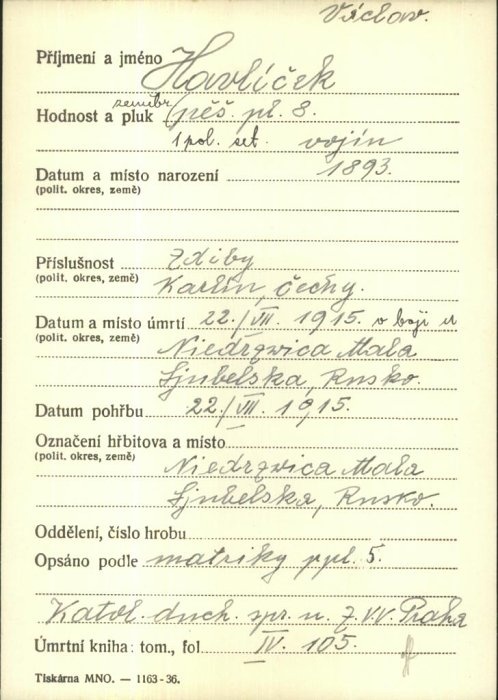 Václav.
Příjmení a jméno Havlíček
zeměbr.
Hodnost a pluk pěš. pl. 8.
1 pol. set. vojín
Datum a místo narození 1893.
(polit. okres, země)
Příslušnost Zdiby
(polit. okres, země) Karlín, Čechy.
Datum a místo úmrtí 22./VII. 1915. v boji u
(polit. okres, země) Niedrzwica Mala
Ljubelska, Rusko.
Datum pohřbu 22./VII. 1915.
Označení hřbitova a místo
(polit. okres, země) Niedrzwica Mala
Ljubelska, Rusko.
Oddělení, číslo hrobu
Opsáno podle matriky ppl. 5.
Katol. duch. spr. u Z.V.V. Praha
Úmrtní kniha: tom., fol IV. 105.
Tiskárna MNO. — 1163-36.